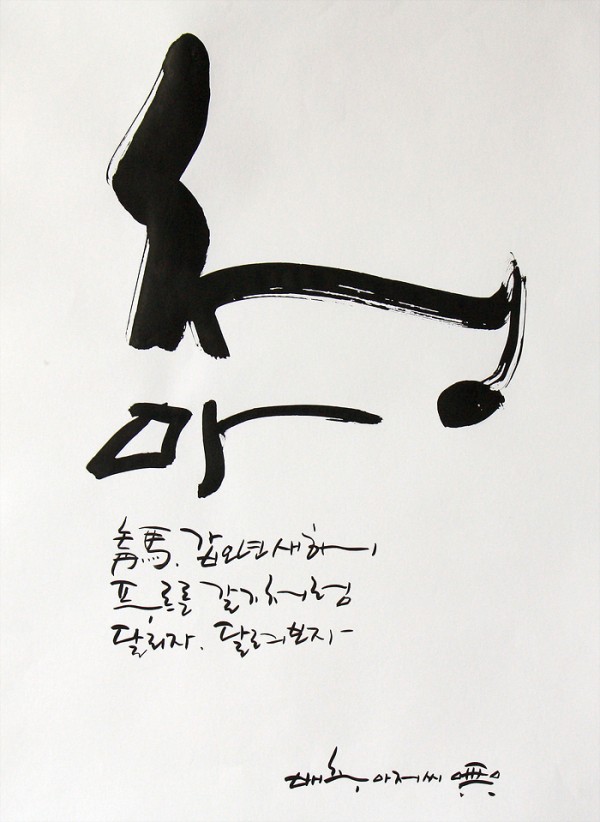 마
靑馬. 갑오년새해
푸르른 갈기처럼
달리자. 달려보자
아저씨